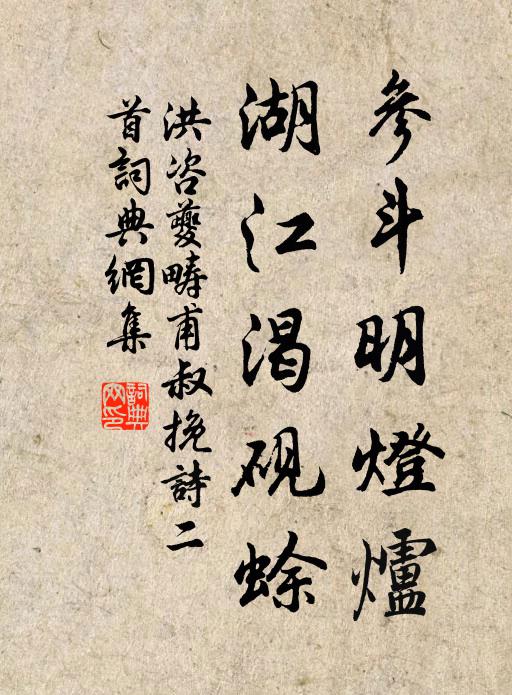 參斗明燈爐
湖江渴硯蜍
洪咨夔疇甫叔挽詩二
首詞典網集
詞典網印